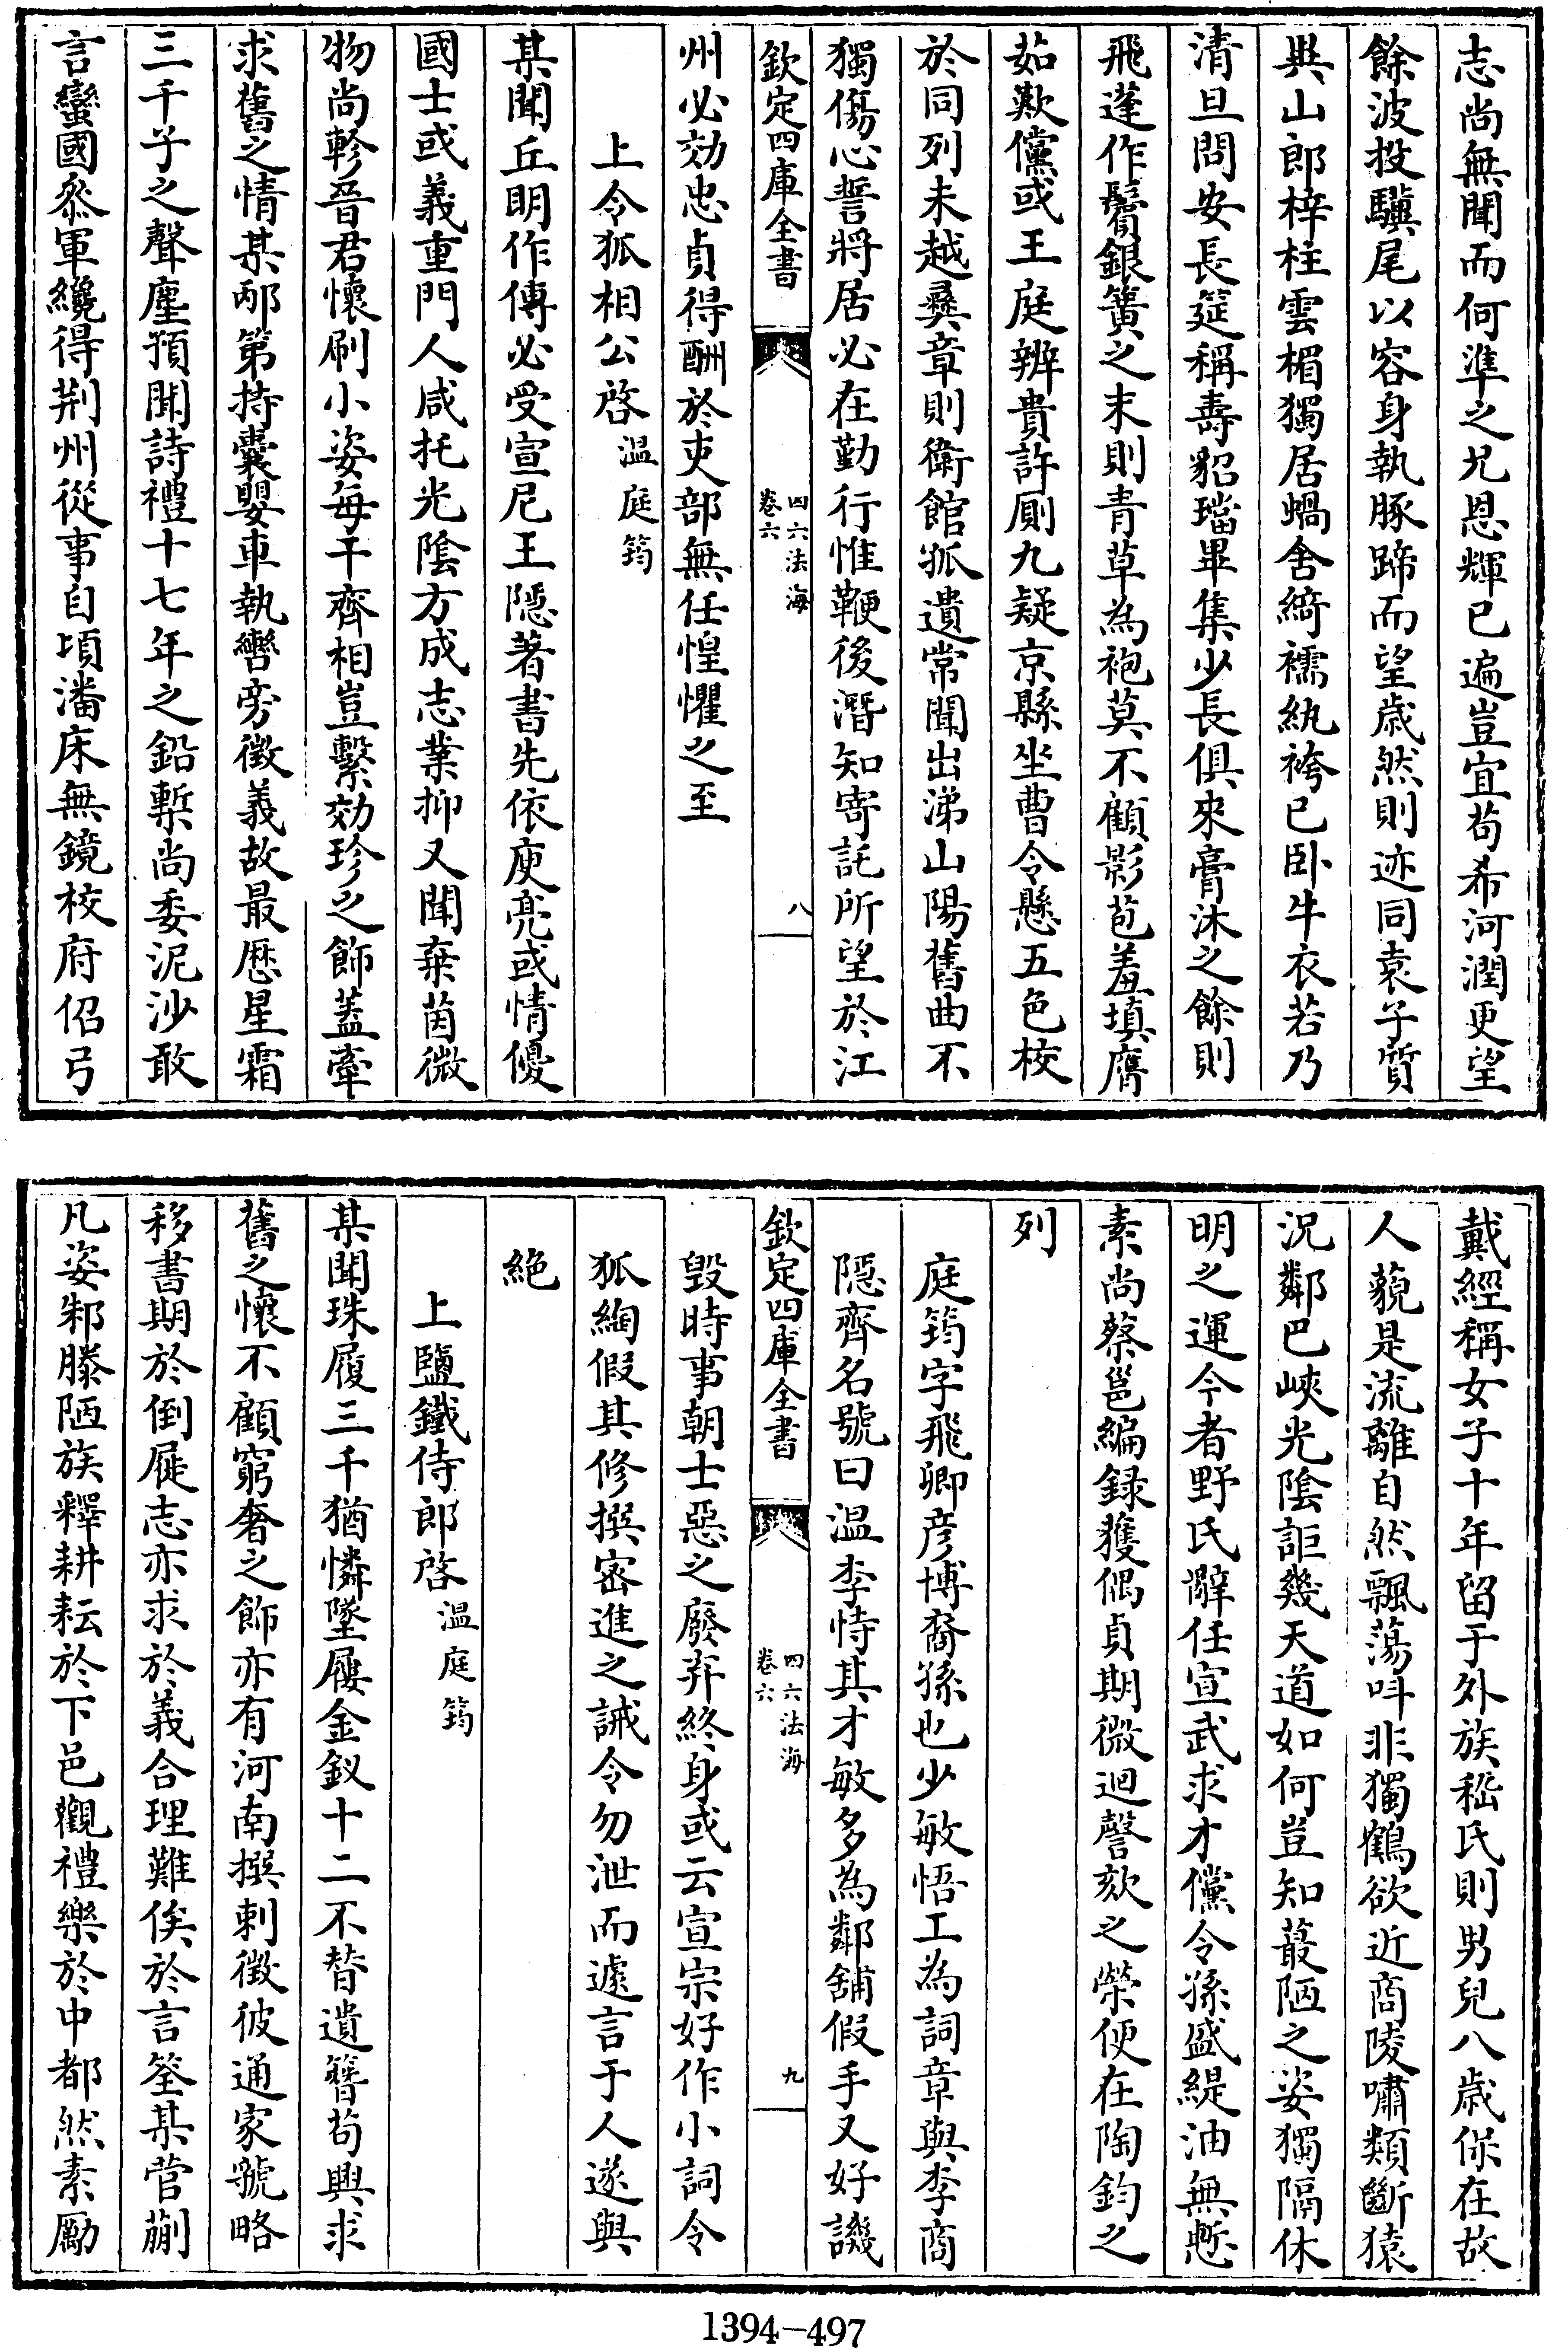 志尚無聞而何準之兄恩輝已遍豈宜苟希河潤更望
餘波投驥尾以容身執豚蹄而望歳然則迹同袁子質
與山郎梓柱雲楣獨居蝸舍綺襦紈袴已卧牛衣若乃
清旦問安長筵稱壽貂璫畢集少長俱來膏沐之餘則
飛蓬作鬢銀簧之末則青草為袍莫不顧影苞羞填膺
茹歎儻或王庭辨貴許厠九疑京縣坐曹令懸五色校
於同列未越彞章則衛館孤遺常聞出涕山陽舊曲不
獨傷心誓將居必在勤行惟鞭後潛知寄託所望於江
欽定四庫全書
四六法海
卷六
八
州必効忠貞得酬於吏部無任惶懼之至
上令狐相公啓 溫庭筠
某聞丘明作傳必受宣尼王隱著書先依庾亮或情優
國士或義重門人咸托光陰方成志業抑又聞棄茵微
物尚軫晉君懷刷小姿每干齊相豈繫効珍之飾蓋牽
求舊之情某邴第持囊嬰車執轡旁徵義故最歴星霜
三千子之聲塵預聞詩禮十七年之鉛槧尚委泥沙敢
言蠻國叅軍纔得荆州從事自頃潘床無鏡校府佋弓
戴經稱女子十年留于外族嵇氏則男兒八歳保在故
人藐是流離自然飄蕩呌非獨鶴欲近商陵嘯類斷猿
況鄰巴峽光陰詎幾天道如何豈知蕞陋之姿獨隔休
明之運今者野氏辭任宣武求才儻令孫盛緹油無慙
素尚蔡邕編録獲偶貞期微廻謦欬之榮便在陶鈞之
列
庭筠字飛卿彦博裔孫也少敏悟工為詞章與李商
隱齊名號曰温李恃其才敏多為鄰舖假手又好譏
欽定四庫全書
四六法海
卷六
九
毁時事朝士惡之廢弃終身或云宣宗好作小詞令
狐綯假其修撰密進之誡令勿泄而遽言于人遂與
絶
上鹽鐵侍郎啓 溫庭筠
某聞珠履三千猶憐墜屨金釵十二不替遺簪苟興求
舊之懷不顧窮奢之飾亦有河南撰刺徵彼通家虢略
移書期於倒屣志亦求於義合理難俟於言筌某菅蒯
凡姿邾滕陋族釋耕耘於下邑觀禮樂於中都然素勵
1394—497